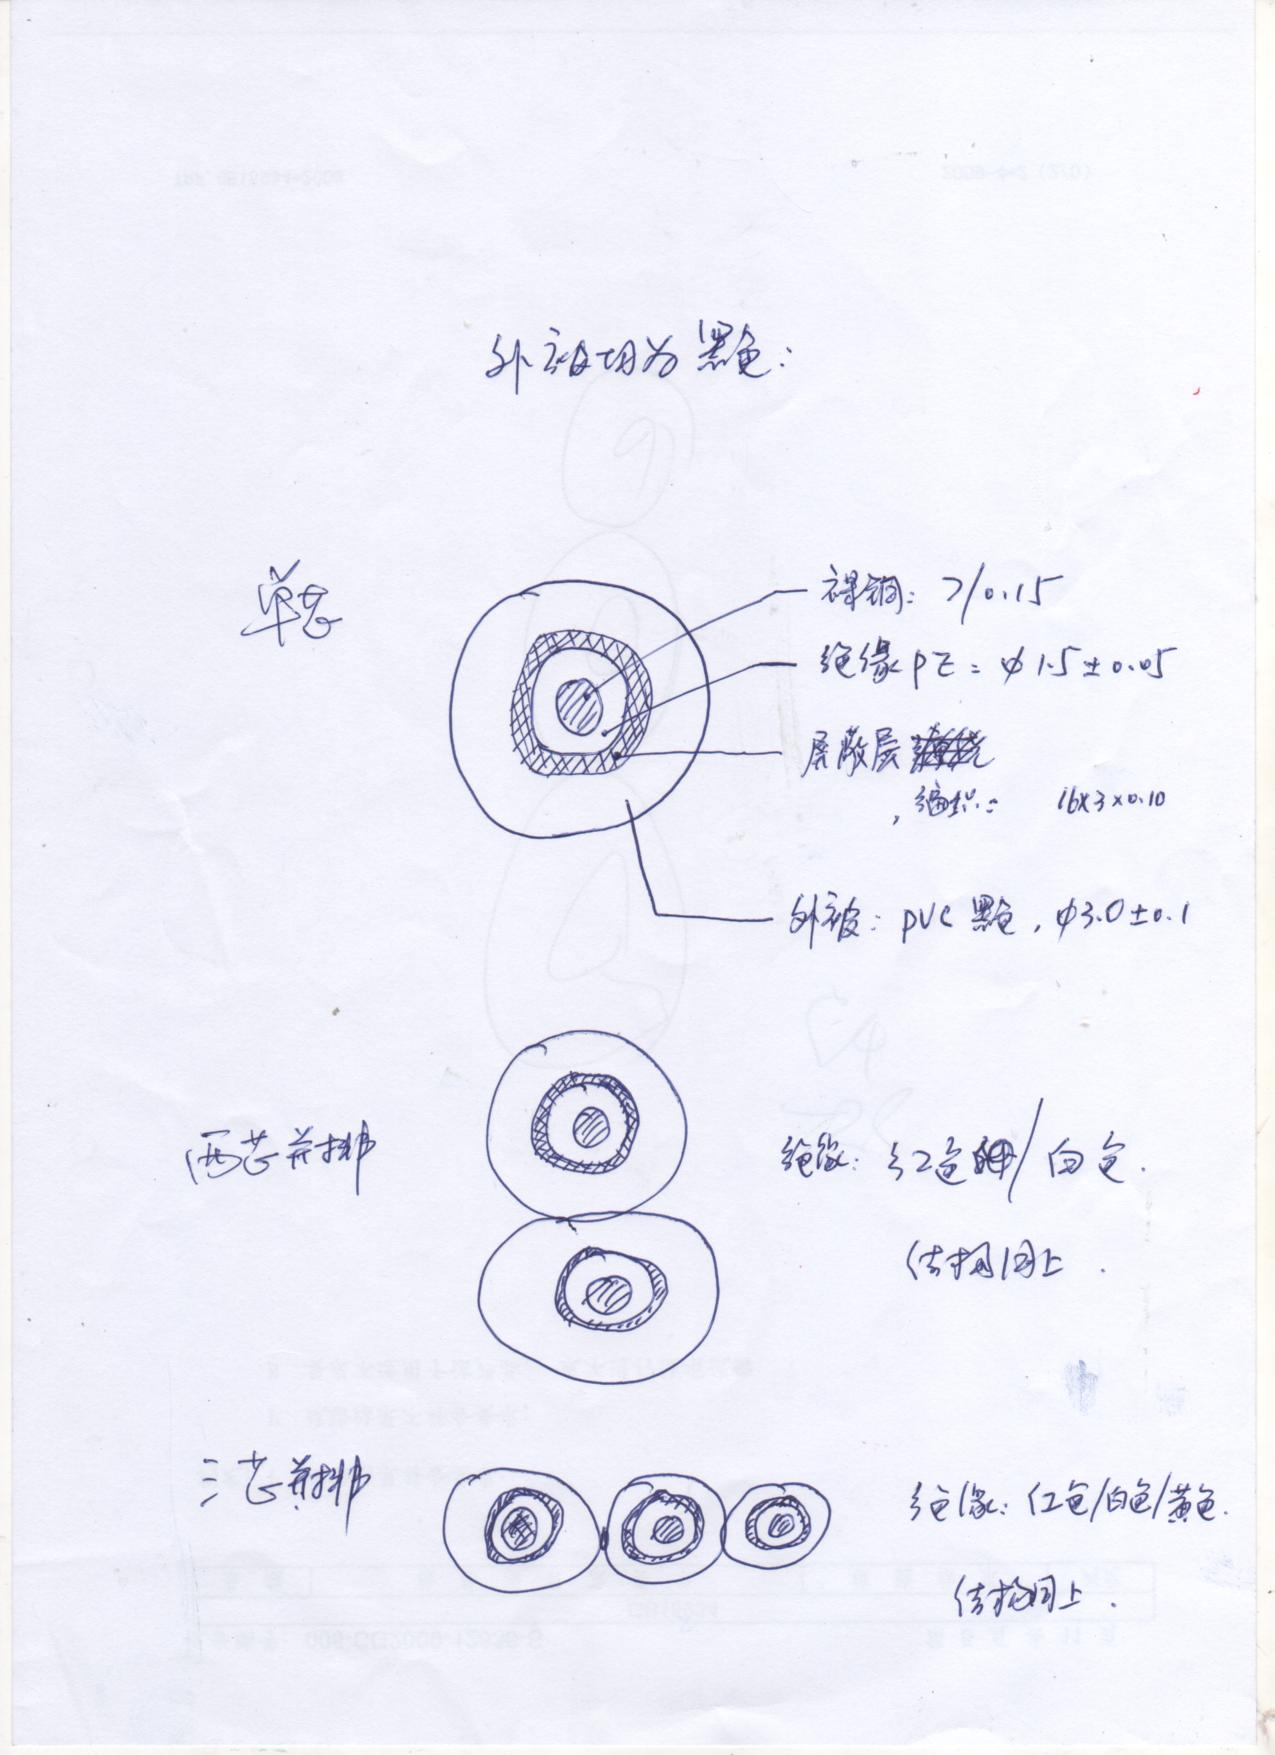 外被均为黑色:
单芯
裸铜: 7/0.15
绝缘PE: φ1.5±0.05
屏蔽层
, 编织: 16×3×0.10
外被: PVC 黑色, φ3.0±0.1
两芯并排
绝缘: 红色/白色.
结构同上.
三芯并排
绝缘: 红色/白色/黄色.
结构同上.